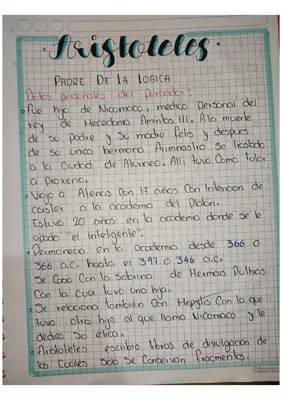 Aristoteles
PADRE DE LA LOGICA
Datos personales del pensador:
• Fue hijo de Nicomaco, medico personal del
rey de Macedonia Amintas III. A la muerte
de su padre y su madre Felis y despues
de su unico hermano Arimnastio se traslado
a la ciudad de Akarneo. Alli tuvo como tutor
a Proxeno.
• Viajo a Atenas con 17 años con intencion de
a la academia del Platon.
Estuvo 20 años en la academia donde se le
apodo "el inteligente".
• Permanecio en la academia desde 366 o
366 a.C. hasta el 347 o 346 a.C.
Se caso con la sobrina de Hermas
con la cual tuvo una hija.
• Se relaciono tambien con Hepylis con la que
tuvo otro hijo al que llamo Nicomaco y le
dedico su etica.
• Aristoteles escribio libros de divulgacion de
los cuales solo se conservan fragmentos.